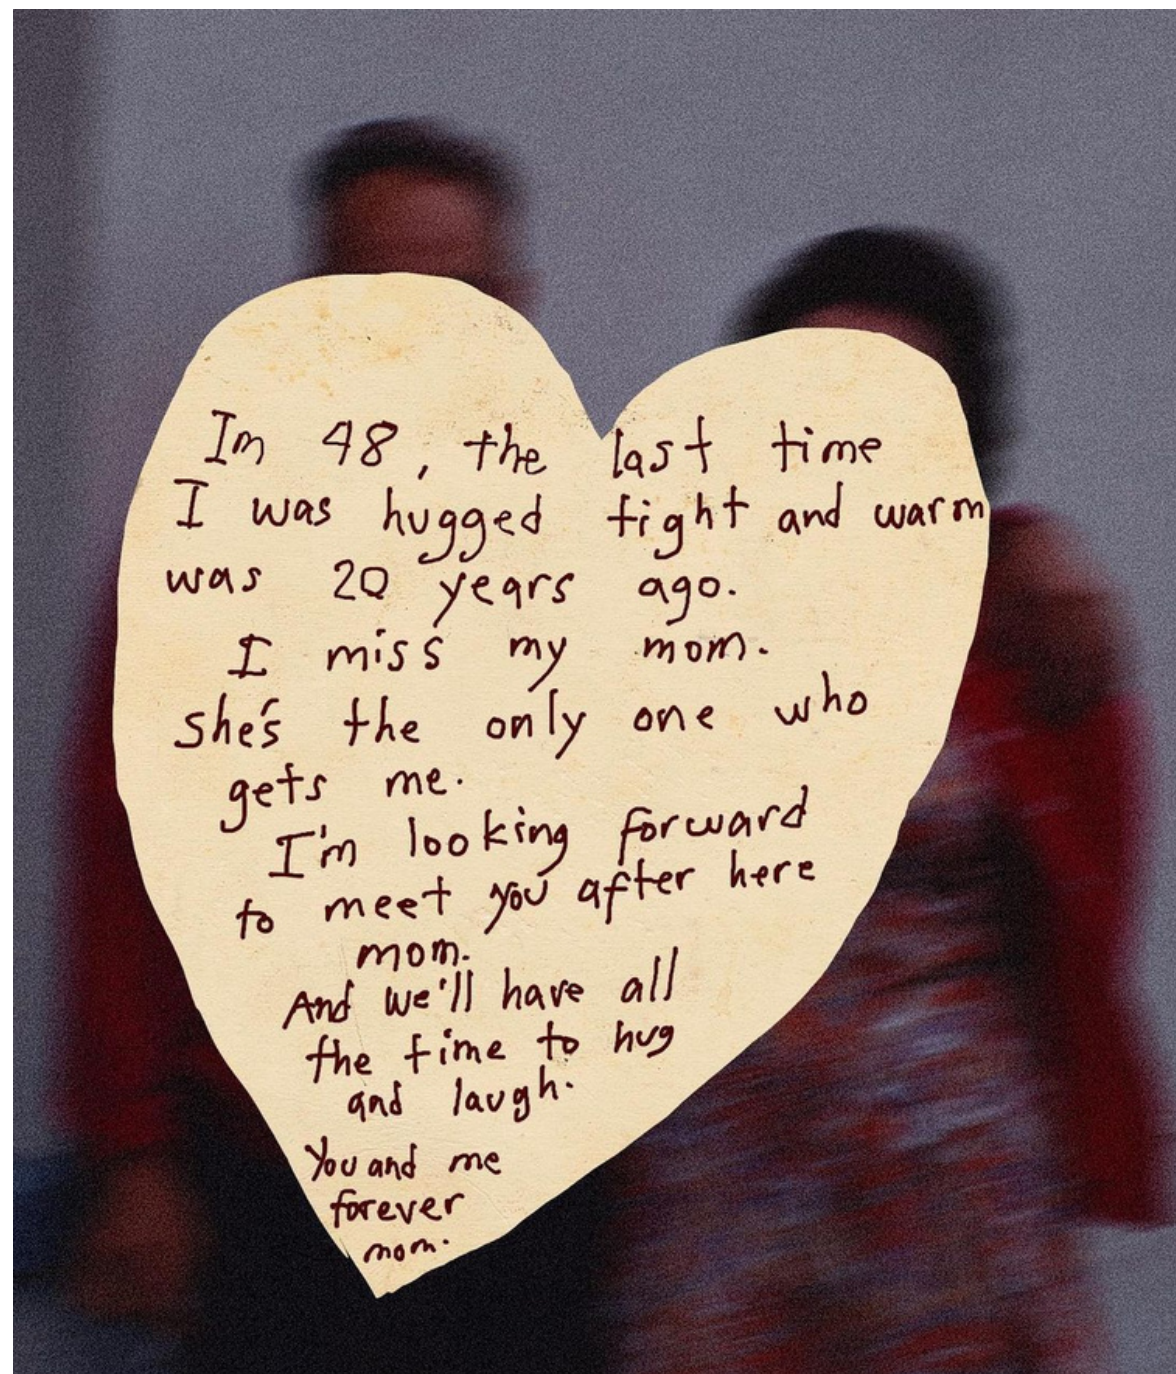 Im 48, the last time
I was hugged tight and warm
was 20 years ago.
I miss my mom.
she's the only one who
gets me.
I'm looking forward
to meet you after here
mom.
And we'll have all
the time to hug
and laugh.
You and me
forever
mom.